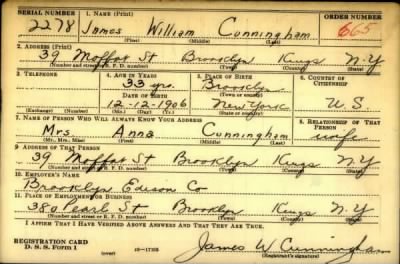 SERIAL NUMBER 1. NAME (Print) ORDER NUMBER
2278 James William Cunningham 665
(First) (Middle) (Last)
2. ADDRESS (Print)
39 Moffat St Brooklyn Kings N.Y
(Number and street or R. F. D. number) (Town) (County) (State)
3. TELEPHONE 4. AGE IN YEARS 5. PLACE OF BIRTH 6. COUNTRY OF CITIZENSHIP
33 yrs. Brooklyn
DATE OF BIRTH (Town or county)
12-12-1906 New York U S
(Exchange) (Number) (Mo.) (Day) (Yr.) (State or country)
7. NAME OF PERSON WHO WILL ALWAYS KNOW YOUR ADDRESS 8. RELATIONSHIP OF THAT PERSON
Mrs Anna Cunningham wife
(Mr., Mrs., Miss) (First) (Middle) (Last)
9. ADDRESS OF THAT PERSON
39 Moffat St Brooklyn Kings N.Y
(Number and street or R. F. D. number) (Town) (County) (State)
10. EMPLOYER'S NAME
Brooklyn Edison Co
11. PLACE OF EMPLOYMENT OR BUSINESS
380 Pearl St Brooklyn Kings N.Y
(Number and street or R. F. D. number) (Town) (County) (State)
I AFFIRM THAT I HAVE VERIFIED ABOVE ANSWERS AND THAT THEY ARE TRUE.
REGISTRATION CARD
D. S. S. FORM 1 (over) 16-17105 James W Cunningham
(Registrant's signature)